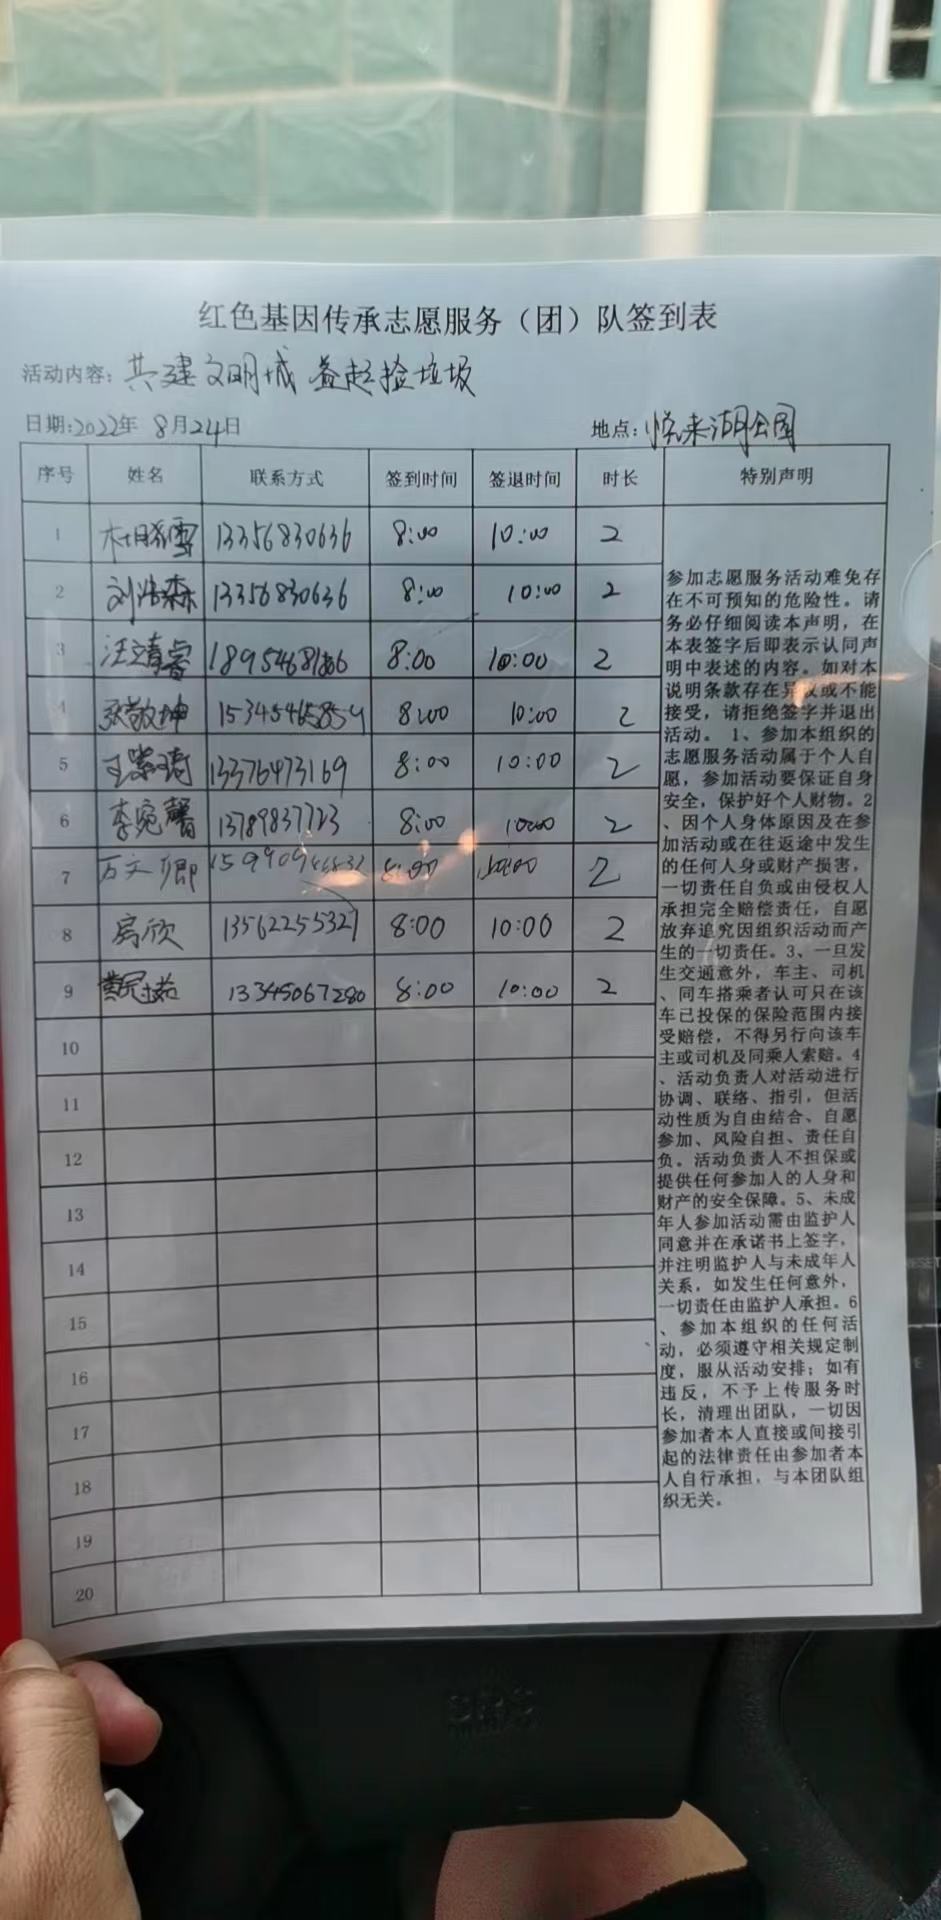 红色基因传承志愿服务（团）队签到表
活动内容：共建文明城 益起捡垃圾
日期：2022年 8月24日 地点：悦来湖公园
序号 姓名 联系方式 签到时间 签退时间 时长 特别声明
1 13356830636 8:00 10:00 2
2 刘浩森 13356830636 8:00 10:00 2
3 汪靖睿 8:00 10:00 2
4 张敬坤 15345465854 8:00 10:00 2
5 王紫琦 13376473169 8:00 10:00 2
6 李宛馨 13789837723 8:00 10:00 2
7 万文卿 8:00 10:00 2
8 房欣 13562255327 8:00 10:00 2
9 13345067280 8:00 10:00 2
10
11
12
13
14
15
16
17
18
19
20
参加志愿服务活动难免存
在不可预知的危险性。请
务必仔细阅读本声明，在
本表签字后即表示认同声
明中表述的内容。如对本
说明条款存在异议或不能
接受，请拒绝签字并退出
活动。 1、参加本组织的
志愿服务活动属于个人自
愿，参加活动要保证自身
安全，保护好个人财物。2
、因个人身体原因及在参
加活动或在往返途中发生
的任何人身或财产损害，
一切责任自负或由侵权人
承担完全赔偿责任，自愿
放弃追究因组织活动而产
生的一切责任。3、一旦发
生交通意外，车主、司机
、同车搭乘者认可只在该
车已投保的保险范围内接
受赔偿，不得另行向该车
主或司机及同乘人索赔。4
、活动负责人对活动进行
协调、联络、指引，但活
动性质为自由结合、自愿
参加、风险自担、责任自
负。活动负责人不担保或
提供任何参加人的人身和
财产的安全保障。5、未成
年人参加活动需由监护人
同意并在承诺书上签字，
并注明监护人与未成年人
关系，如发生任何意外，
一切责任由监护人承担。6
、参加本组织的任何活
动，必须遵守相关规定制
度，服从活动安排；如有
违反，不予上传服务时
长，清理出团队，一切因
参加者本人直接或间接引
起的法律责任由参加者本
人自行承担，与本团队组
织无关。